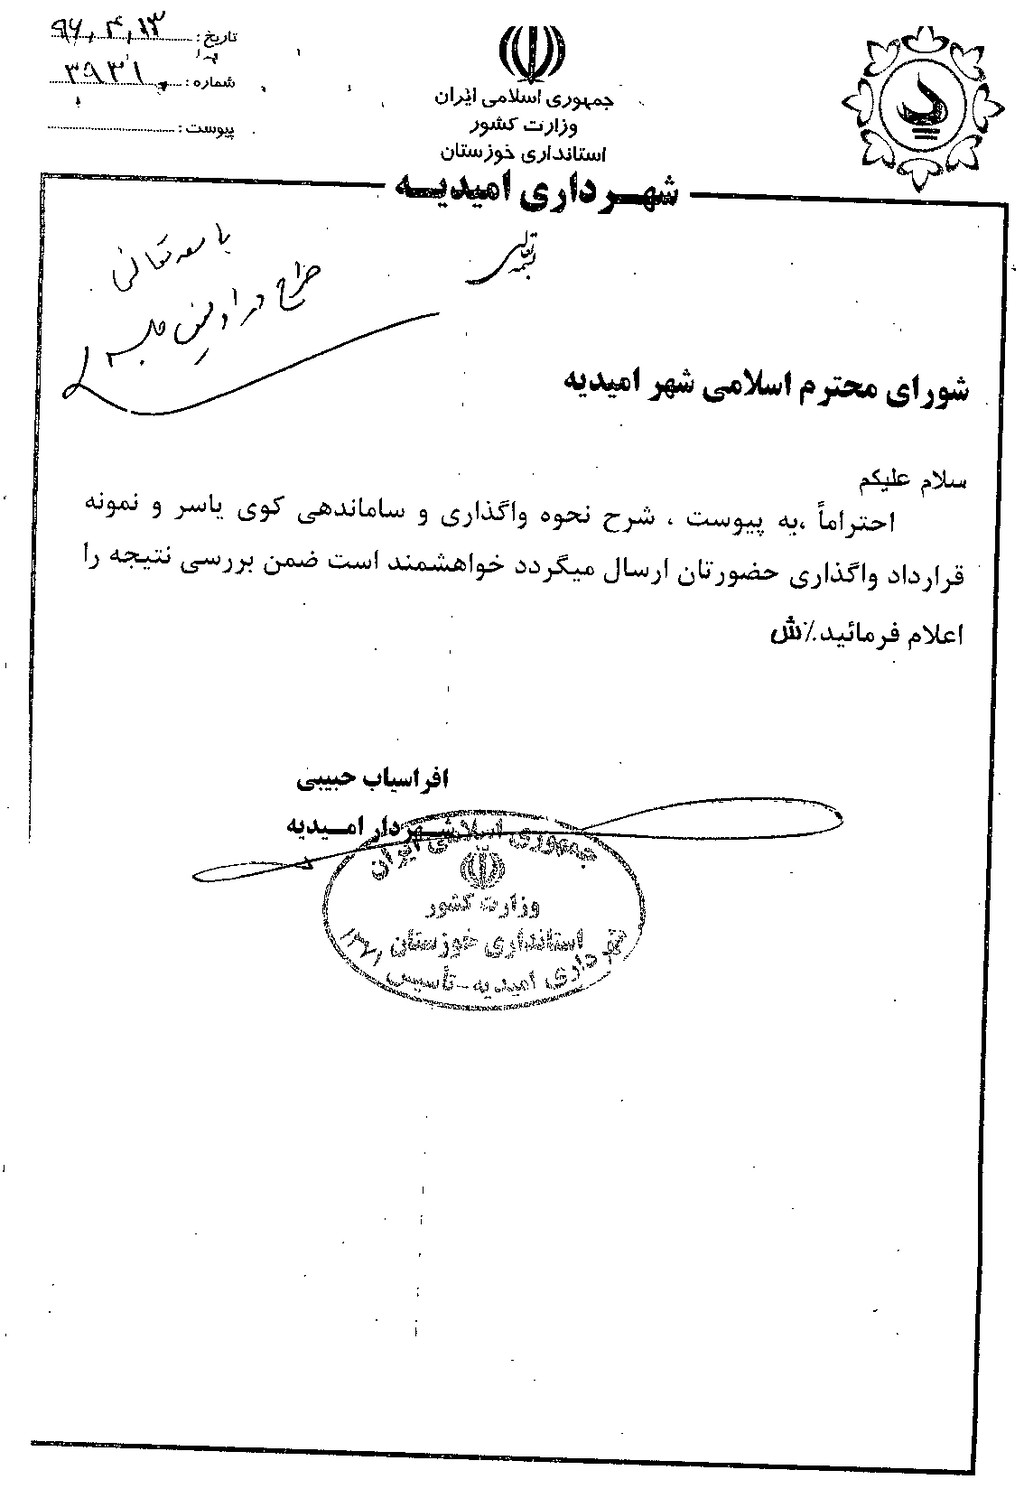 جمهوری اسلامی ایران
وزارت کشور
استانداری خوزستان
شهرداری امیدیه
تاریخ : ۹۶,۴,۱۳
شماره : ۳۹۳۱
پیوست :
بسمه تعالی
باسمه تعالی
طرح در اولین جلسه
شورای محترم اسلامی شهر امیدیه
سلام علیکم
احتراماً ،به پیوست ، شرح نحوه واگذاری و ساماندهی کوی یاسر و نمونه
قرارداد واگذاری حضورتان ارسال میگردد خواهشمند است ضمن بررسی نتیجه را
اعلام فرمائید./ش
افراسیاب حبیبی
شهردار امیدیه
جمهوری اسلامی ایران
وزارت کشور
استانداری خوزستان
شهرداری امیدیه-تأسیس ۱۳۷۱